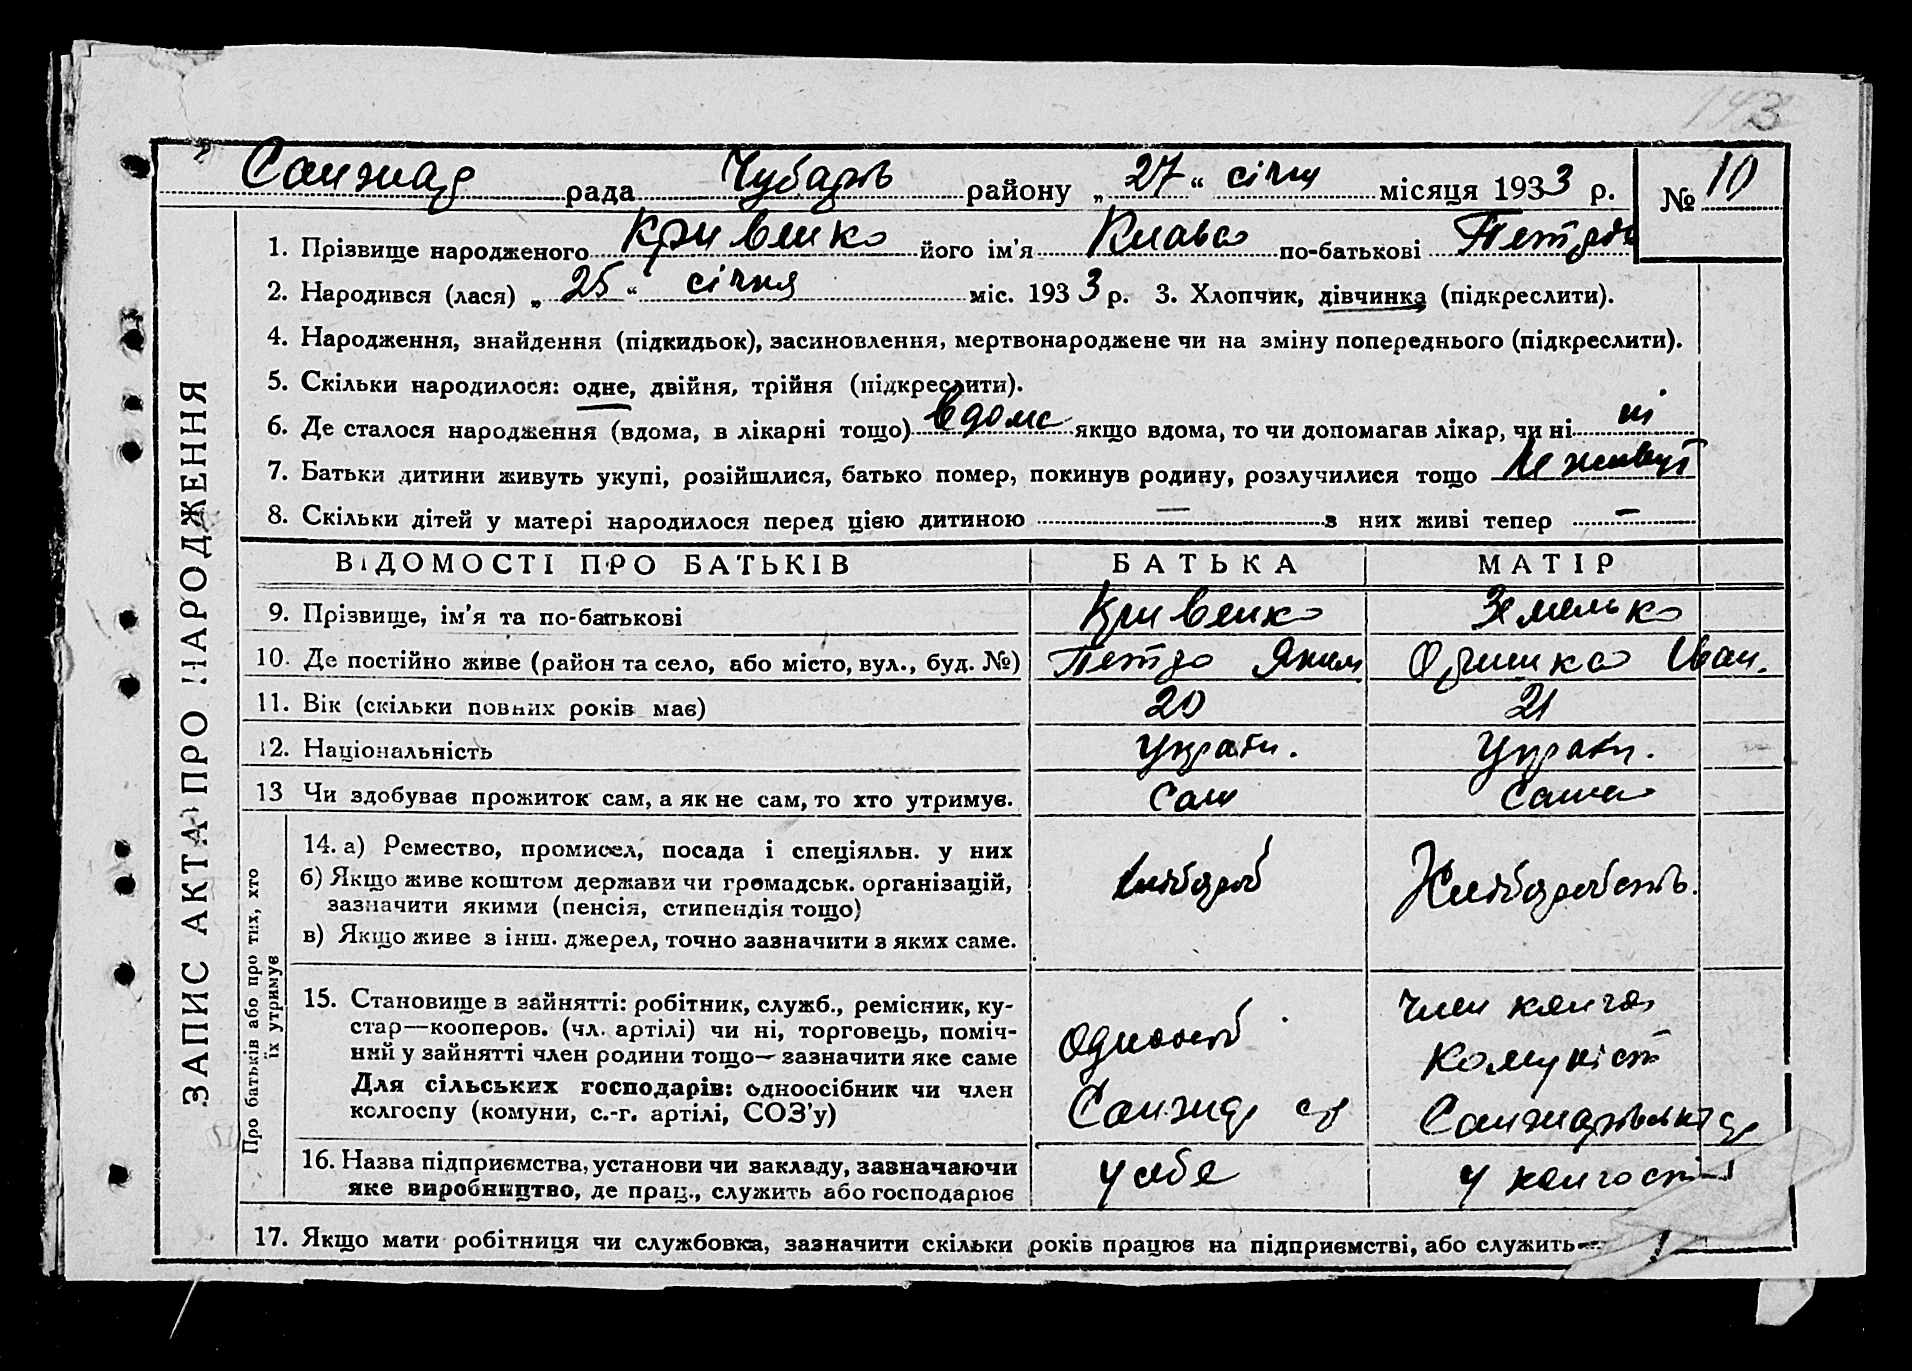 143
Санжар рада Чубарів району „27“ січня місяця 1933 р. № 10
1. Прізвище народженого Кривенко його ім'я Клава по-батькові Петров
2. Народився (лася) „25“ січня міс. 1933 р. 3. Хлопчик, дівчинка (підкреслити).
4. Народження, знайдення (підкидьок), засиновлення, мертвонароджене чи на зміну попереднього (підкреслити).
5. Скільки народилося: одне, двійня, трійня (підкреслити).
6. Де сталося народження (вдома, в лікарні тощо) вдома якщо вдома, то чи допомагав лікар, чи ні ні
7. Батьки дитини живуть укупі, розійшлися, батько помер, покинув родину, розлучилися тощо не живут
8. Скільки дітей у матері народилося перед цією дитиною — з них живі тепер —
ЗАПИС АКТА ПРО НАРОДЖЕННЯ
ВІДОМОСТІ ПРО БАТЬКІВ БАТЬКА МАТІР
9. Прізвище, ім'я та по-батькові Кривенко
10. Де постійно живе (район та село, або місто, вул., буд. №) Петро Яким Оришка Іван.
11. Вік (скільки повних років має) 20 21
12. Національність Україн. Україн.
13 Чи здобуває прожиток сам, а як не сам, то хто утримує. Сам Сама
Про батьків або про тих, хто
їх утримує
14. а) Ремество, промисел, посада і спеціяльн. у них
б) Якщо живе коштом держави чи громадськ. організацій,
зазначити якими (пенсія, стипендія тощо)
в) Якщо живе з інш. джерел, точно зазначити з яких саме.
хлібороб Хліборобств.
15. Становище в зайнятті: робітник, служб., ремісник, ку-
стар—кооперов. (чл. артілі) чи ні, торговець, поміч-
ний у зайнятті член родини тощо—зазначити яке саме
Для сільських господарів: одноосібник чи член
колгоспу (комуни, с.-г. артілі, СОЗ'у)
Одноосіб
Санжар
член колгос
комуніст
16. Назва підприємства, установи чи закладу, зазначаючи
яке виробництво, де прац., служить або господарює
у себе у колгоспі
17. Якщо мати робітниця чи службовка, зазначити скільки років працює на підприємстві, або служить